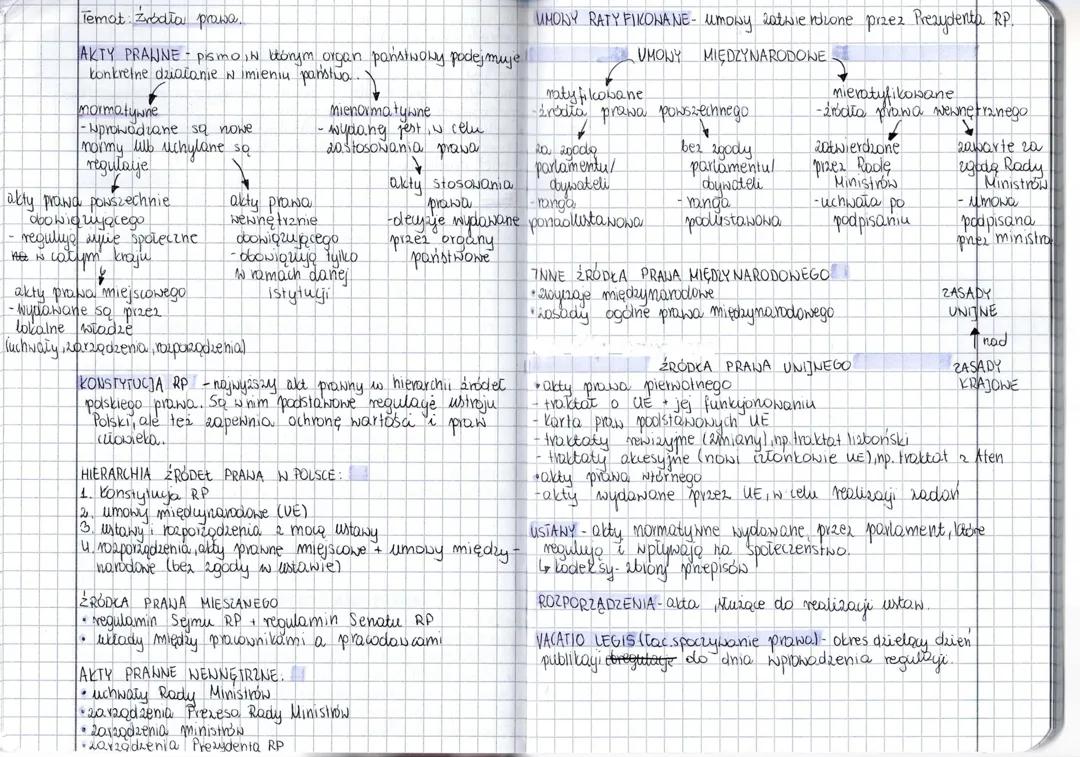 Temat: Źródła prawa.
AKTY PRAWNE - pismo, w którym organ państwowy podejmuje
konkretne działanie w imieniu państwa.
normatywne
- wprowadzane są nowe
normy lub uchylane są
regulacje
nienormatywne
- wydany jest, w celu
zastosowania prawa
akty prawa powszechnie
obowiązującego
- regulują życie społeczne
w całym kraju
akty prawa
wewnętrznie
obowiązującego
- obowiązują tylko
w ramach danej
istytucji
akty stosowania
prawa
- decyzje wydawane
przez organy
państwowe
akty prawa miejscowego
- wydawane są przez
lokalne władze
(uchwały, zarządzenia, rozporządzenia)
KONSTYTUCJA RP - najwyższy akt prawny w hierarchii źródeł
polskiego prawa. Są w nim podstawowe regulacje ustroju
Polski, ale też zapewnia ochronę wartości i praw
człowieka.
HIERARCHIA ŹRÓDEŁ PRAWA W POLSCE:
1. Konstytucja RP
2. umowy międzynarodowe (UE)
3. ustawy i rozporządzenia z mocą ustawy
4. rozporządzenia, akty prawne miejscowe + umowy między-
narodowe (bez zgody w ustawie)
ŹRÓDŁA PRAWA MIESZANEGO
• regulamin Sejmu RP + regulamin Senatu RP
• układy między pracownikami a pracodawcami
AKTY PRAWNE WEWNĘTRZNE:
• uchwały Rady Ministrów
• zarządzenia Prezesa Rady Ministrów
• zarządzenia ministrów
• zarządzenia Prezydenta RP
UMOWY RATYFIKOWANE - umowy zatwierdzone przez Prezydenta RP.
UMOWY MIĘDZYNARODOWE
ratyfikowane
- źródła prawa powszechnego
nieratyfikowane
- źródła prawa wewnętrznego
za zgodą
parlamentu/
obywateli
- ranga
ponadustawowa
bez zgody
parlamentu/
obywateli
- ranga
podustawowa
zatwierdzone
przez Radę
Ministrów
- uchwała po
podpisaniu
zawarte za
zgodą Rady
Ministrów
- umowa
podpisana
przez ministra
INNE ŹRÓDŁA PRAWA MIĘDZYNARODOWEGO
• zwyczaje międzynarodowe
• zasady ogólne prawa międzynarodowego
ZASADY
UNIJNE
nad
ZASADY
KRAJOWE
ŹRÓDŁA PRAWA UNIJNEGO
• akty prawa pierwotnego
- traktat o UE + jej funkcjonowaniu
- Karta praw podstawowych UE
- traktaty rewizyjne (zmiany), np. traktat lizboński
- traktaty akcesyjne (nowi członkowie UE), np. traktat z Aten
• akty prawa wtórnego
- akty wydawane przez UE, w celu realizacji zadań
USTAWY - akty normatywne wydawane, przez parlament, które
regulują i wpływają na społeczeństwo.
↳ kodeksy - zbiory przepisów
ROZPORZĄDZENIA - akta, służące do realizacji ustaw.
VACATIO LEGIS (łac. spoczywanie prawa) - okres dzielący dzień
publikacji do dnia wprowadzenia regulacji.